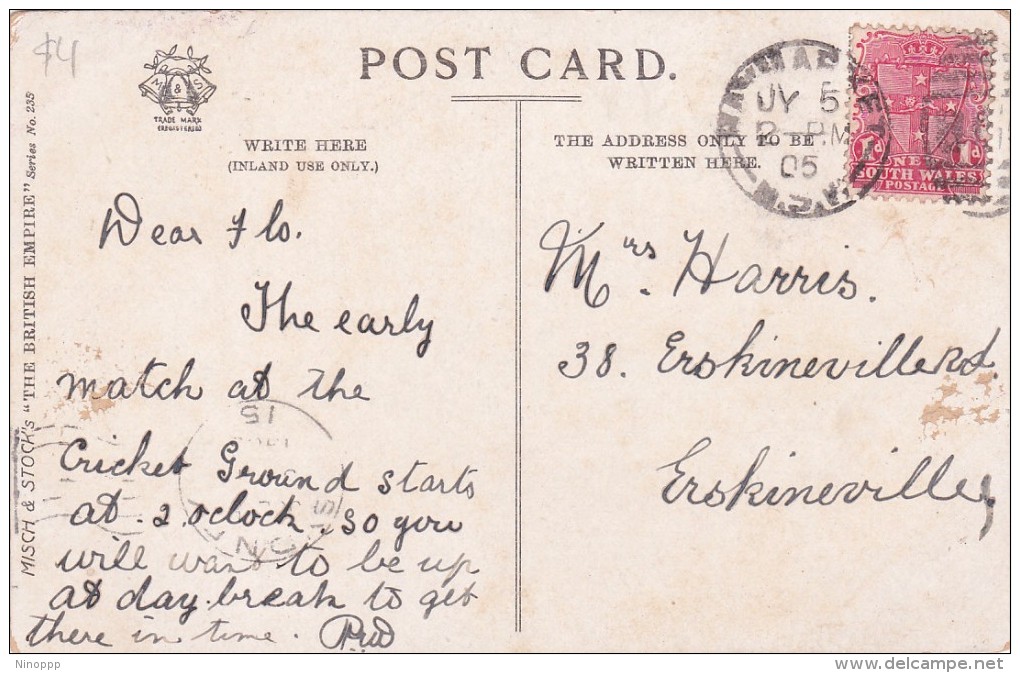 $4
M & S
TRADE MARK
REGISTERED
POST CARD.
WRITE HERE
(INLAND USE ONLY.)
THE ADDRESS ONLY TO BE
WRITTEN HERE.
JY 5
2-PM
05
N.S.W.
1d
NEW
1d
SOUTH WALES
POSTAGE
MISCH & STOCK's "THE BRITISH EMPIRE" Series No. 235
Dear Flo.
The early
match at the
Cricket Ground starts
at. 2. oclock. so you
will want to be up
at day.break to get
there in time.
15
Mrs. Harris.
38. Erskineville Rd.
Erskineville
Ninoppp
delcampe.net